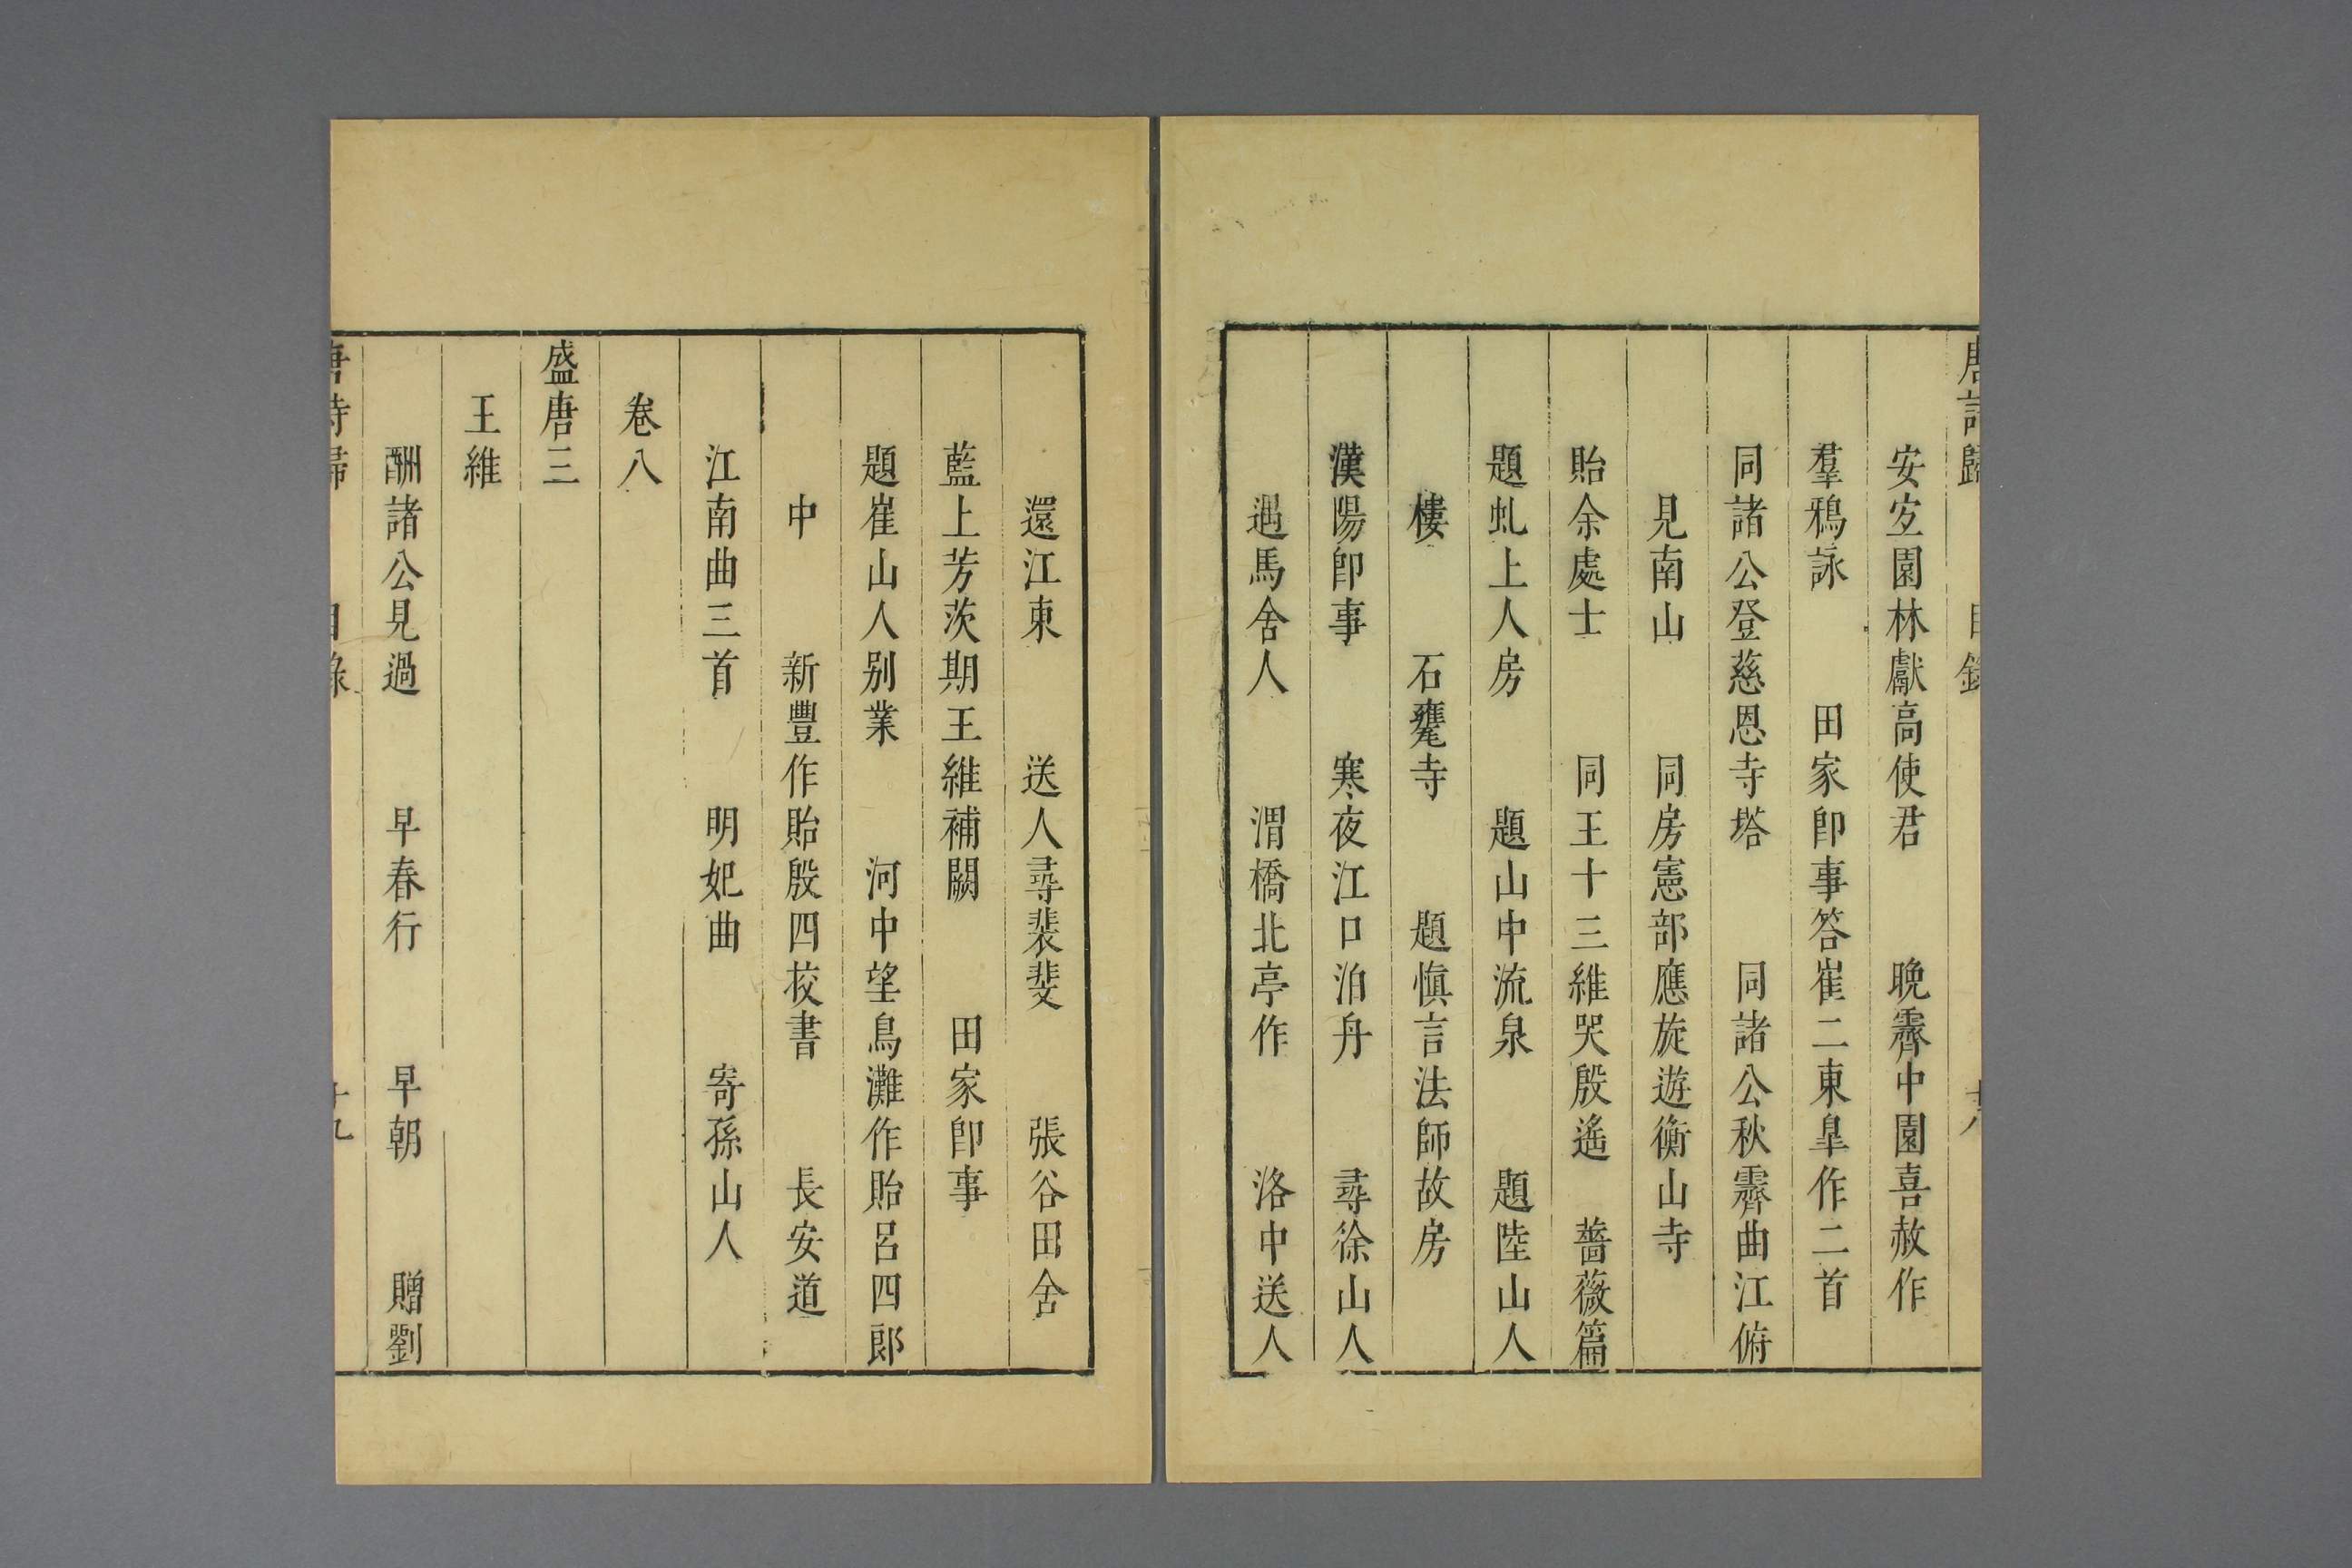 唐詩歸 目錄 十八
安宐園林獻高使君 晚霽中園喜赦作
羣鴉詠 田家卽事答崔二東臯作二首
同諸公登慈恩寺塔 同諸公秋霽曲江俯
見南山 同房憲部應旋遊衡山寺
貽余處士 同王十三維哭殷遙 薔薇篇
題虬上人房 題山中流泉 題陸山人
樓 石甕寺 題愼言法師故房
漢陽卽事 寒夜江口泊舟 尋徐山人
遇馬舍人 渭橋北亭作 洛中送人
還江東 送人尋裴斐 張谷田舍
藍上芳茨期王維補闕 田家卽事
題崔山人别業 河中望鳥灘作貽呂四郎
中 新豐作貽殷四挍書 長安道
江南曲三首 明妃曲 寄孫山人
卷八
盛唐三
王維
酬諸公見過 早春行 早朝 贈劉
唐詩歸 目錄 十九